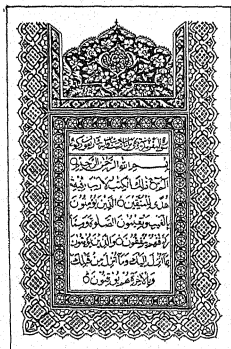 بِسْمِ اللهِ الرَّحْمٰنِ الرَّحِيْمِ
الٓمٓ ذٰلِكَ الْكِتٰبُ لَا رَيْبَ فِيْهِ
هُدًى لِّلْمُتَّقِيْنَ الَّذِيْنَ يُؤْمِنُوْنَ
بِالْغَيْبِ وَيُقِيْمُوْنَ الصَّلٰوةَ وَمِمَّا
رَزَقْنٰهُمْ يُنْفِقُوْنَ وَالَّذِيْنَ يُؤْمِنُوْنَ
بِمَآ اُنْزِلَ اِلَيْكَ وَمَآ اُنْزِلَ مِنْ قَبْلِكَ
وَبِالْاٰخِرَةِ هُمْ يُوْقِنُوْنَ